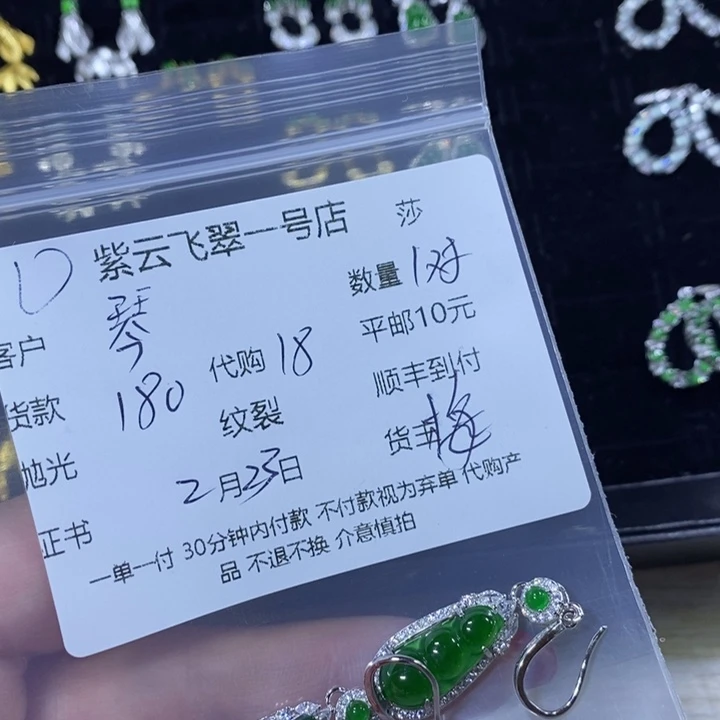 紫云飞翠一号店 莎
客户 琴 数量 1对
货款 180 代购 18 平邮10元
抛光 纹裂 顺丰到付
证书 2月23日 货主
一单一付 30分钟内付款 不付款视为弃单 代购产
品 不退不换 介意慎拍